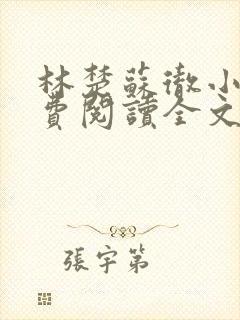 林楚蘇徹小
費閱讀全文
張宇第